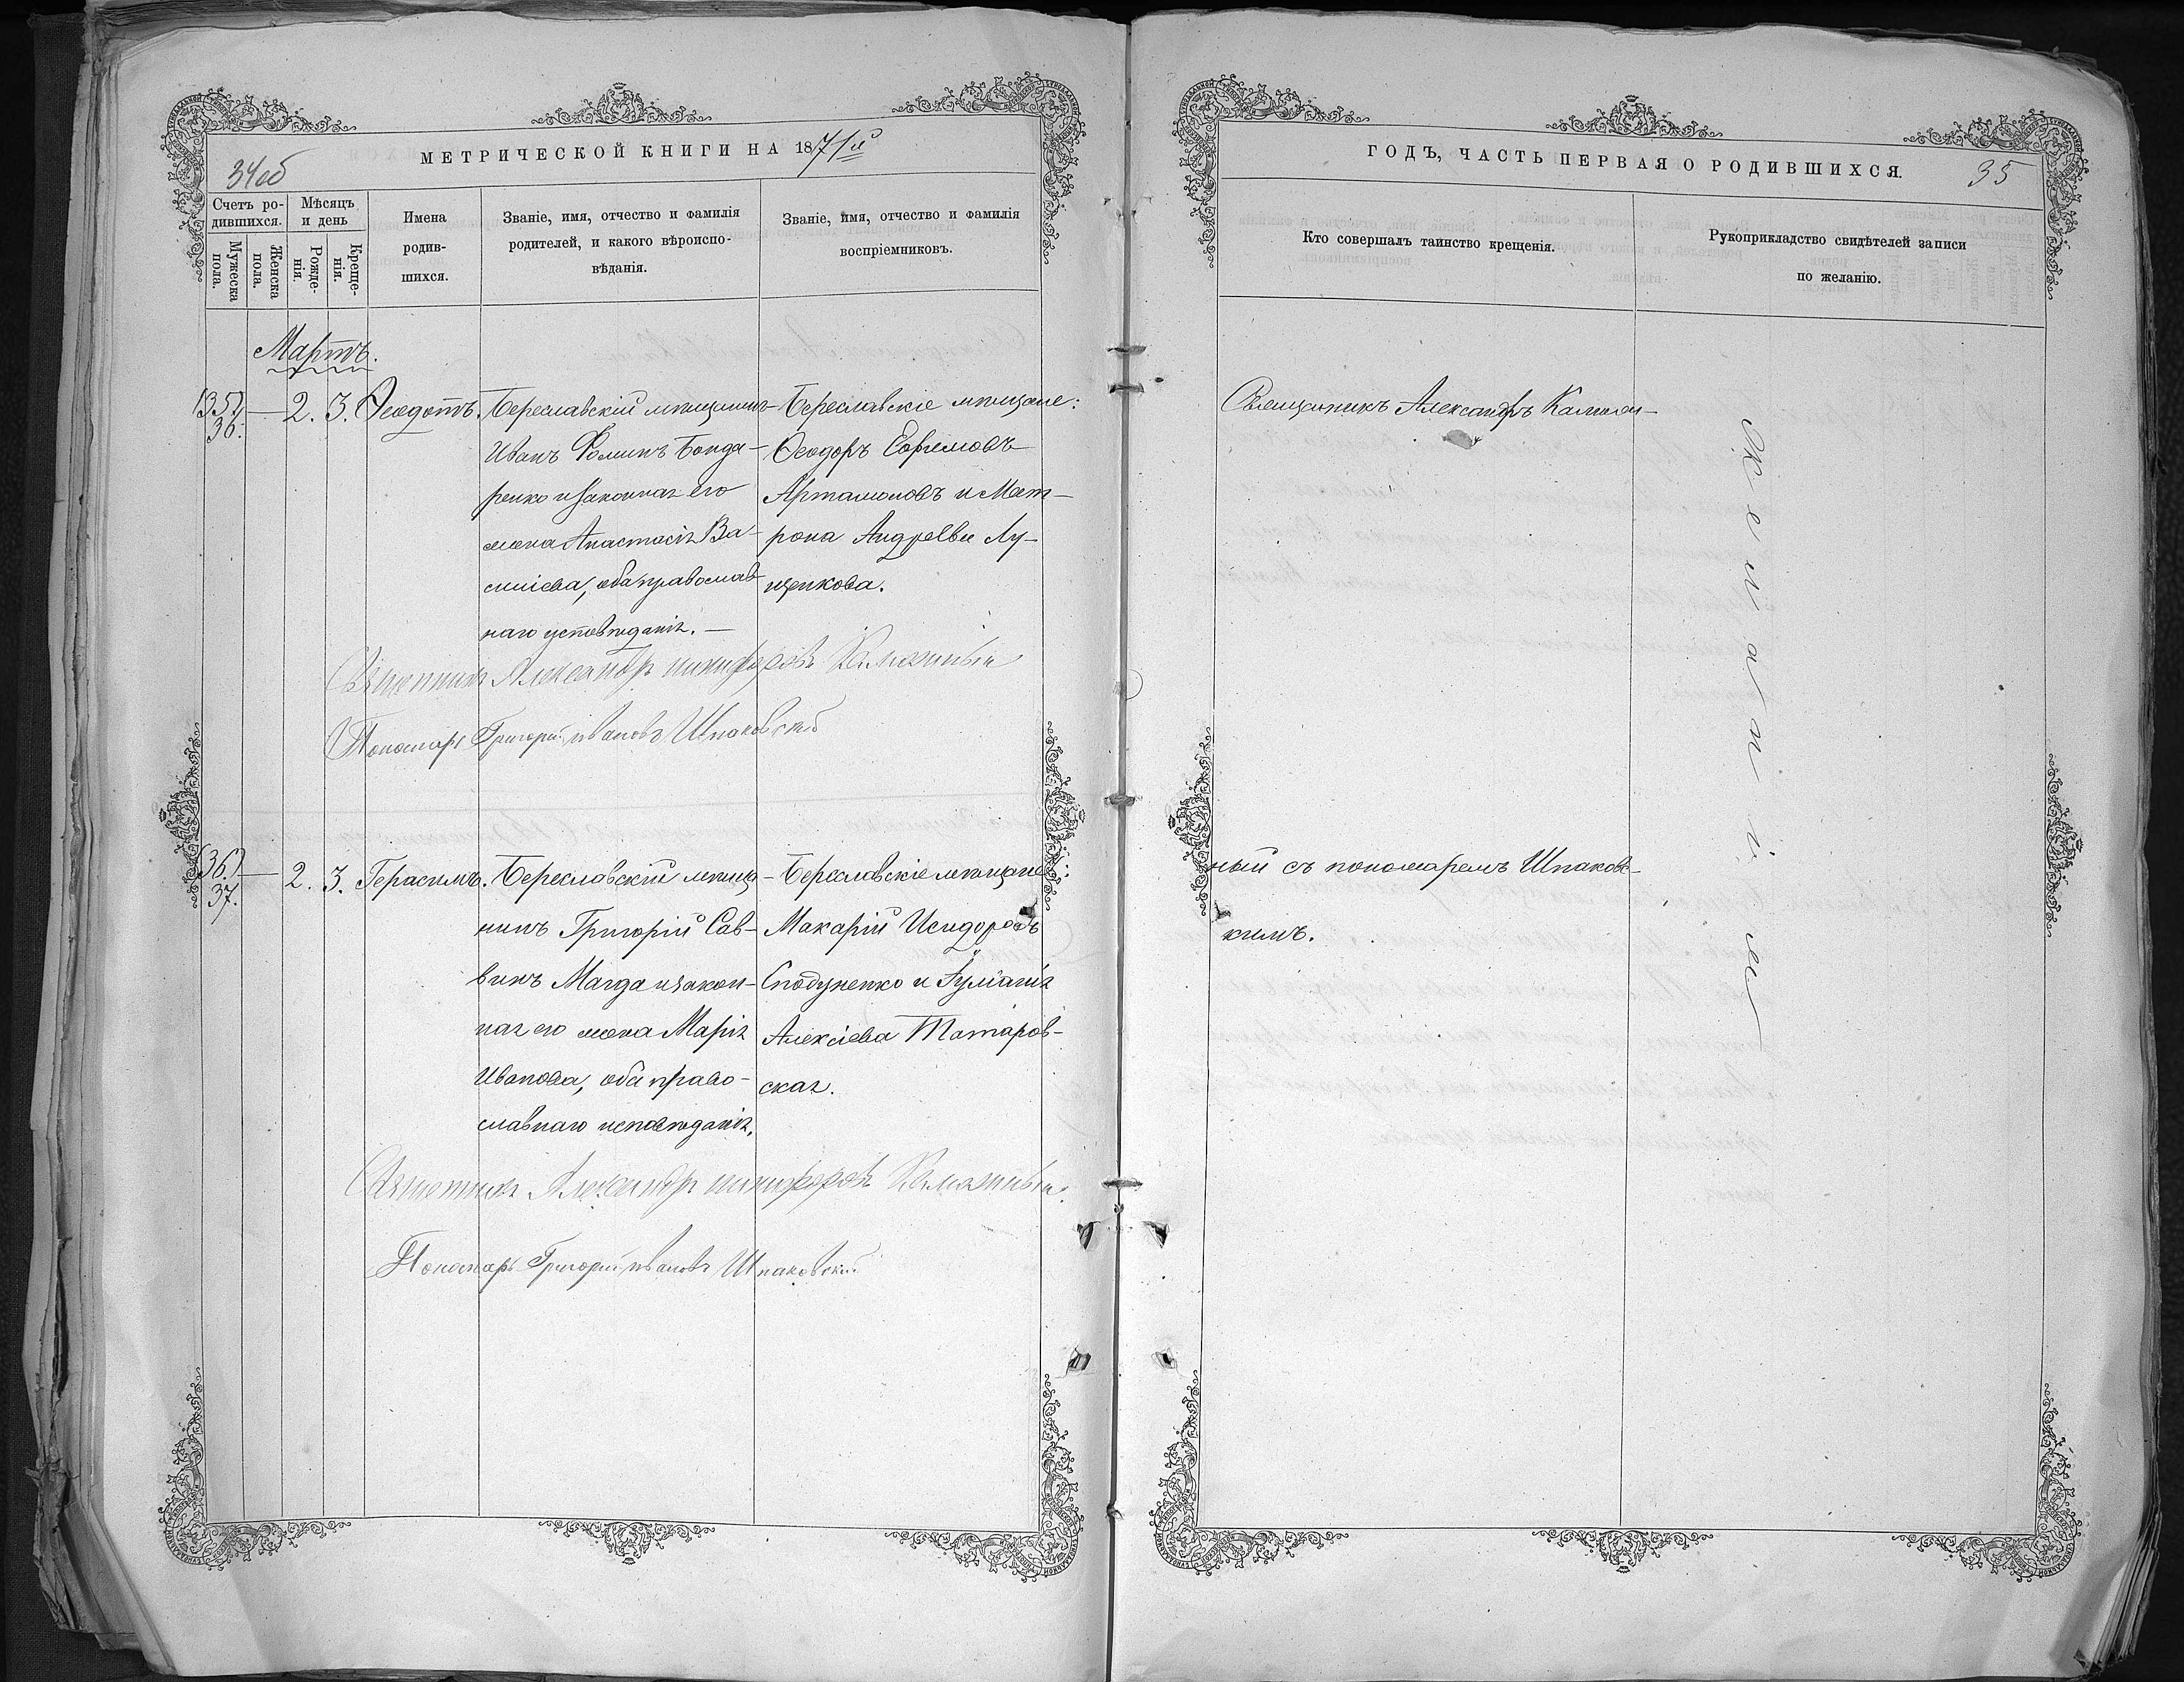 34об
МЕТРИЧЕСКОЙ КНИГИ НА 1871й
Счетъ ро-
дившихся.
Мужеска
пола.
Женска
пола.
Мѣсяцъ
и день
Рожде-
нія.
Креще-
нія.
Имена
родив-
шихся.
Званіе, имя, отчество и фамилія
родителей, и какого вѣроиспо-
вѣданія.
Званіе, имя, отчество и фамилія
воспріемниковъ.
Мартъ.
(35.) — 2. 3. Ѳеодотъ.
36.
Береславскій мѣщанинъ
Иванъ Ѳоминъ Бонда-
ренко и законная его
жена Анастасія Ва-
силіева, оба православ
наго исповѣданія. —
Береславскіе мѣщане:
Ѳеодоръ Ефремовъ
Артамоновъ и Мат-
рона Андреева Лу-
ценкова.
Священникъ Александръ Никифоровъ Каложный
Пономарь Григорий Ивановъ Шпаковскій
(36.) — 2. 3. Герасимъ.
37.
Береславскій мѣща-
нинъ Григорій Сав-
винъ Магда и закон-
ная его жена Марія
Иванова, оба право-
славнаго исповѣданія.
Береславскіе мѣщане:
Макарій Исидоровъ
Сподуненко и Іуліанія
Алексіева Татаров-
ская.
Священникъ Александръ Никифоровъ Каложный.
Пономарь Григорий Ивановъ Шпаковский.
ГОДЪ, ЧАСТЬ ПЕРВАЯ О РОДИВШИХСЯ.
35
Кто совершалъ таинство крещенія.
Рукоприкладство свидѣтелей записи
по желанію.
Священникъ Александръ Калюж-
ный съ пономаремъ Шпаковс-
кимъ.